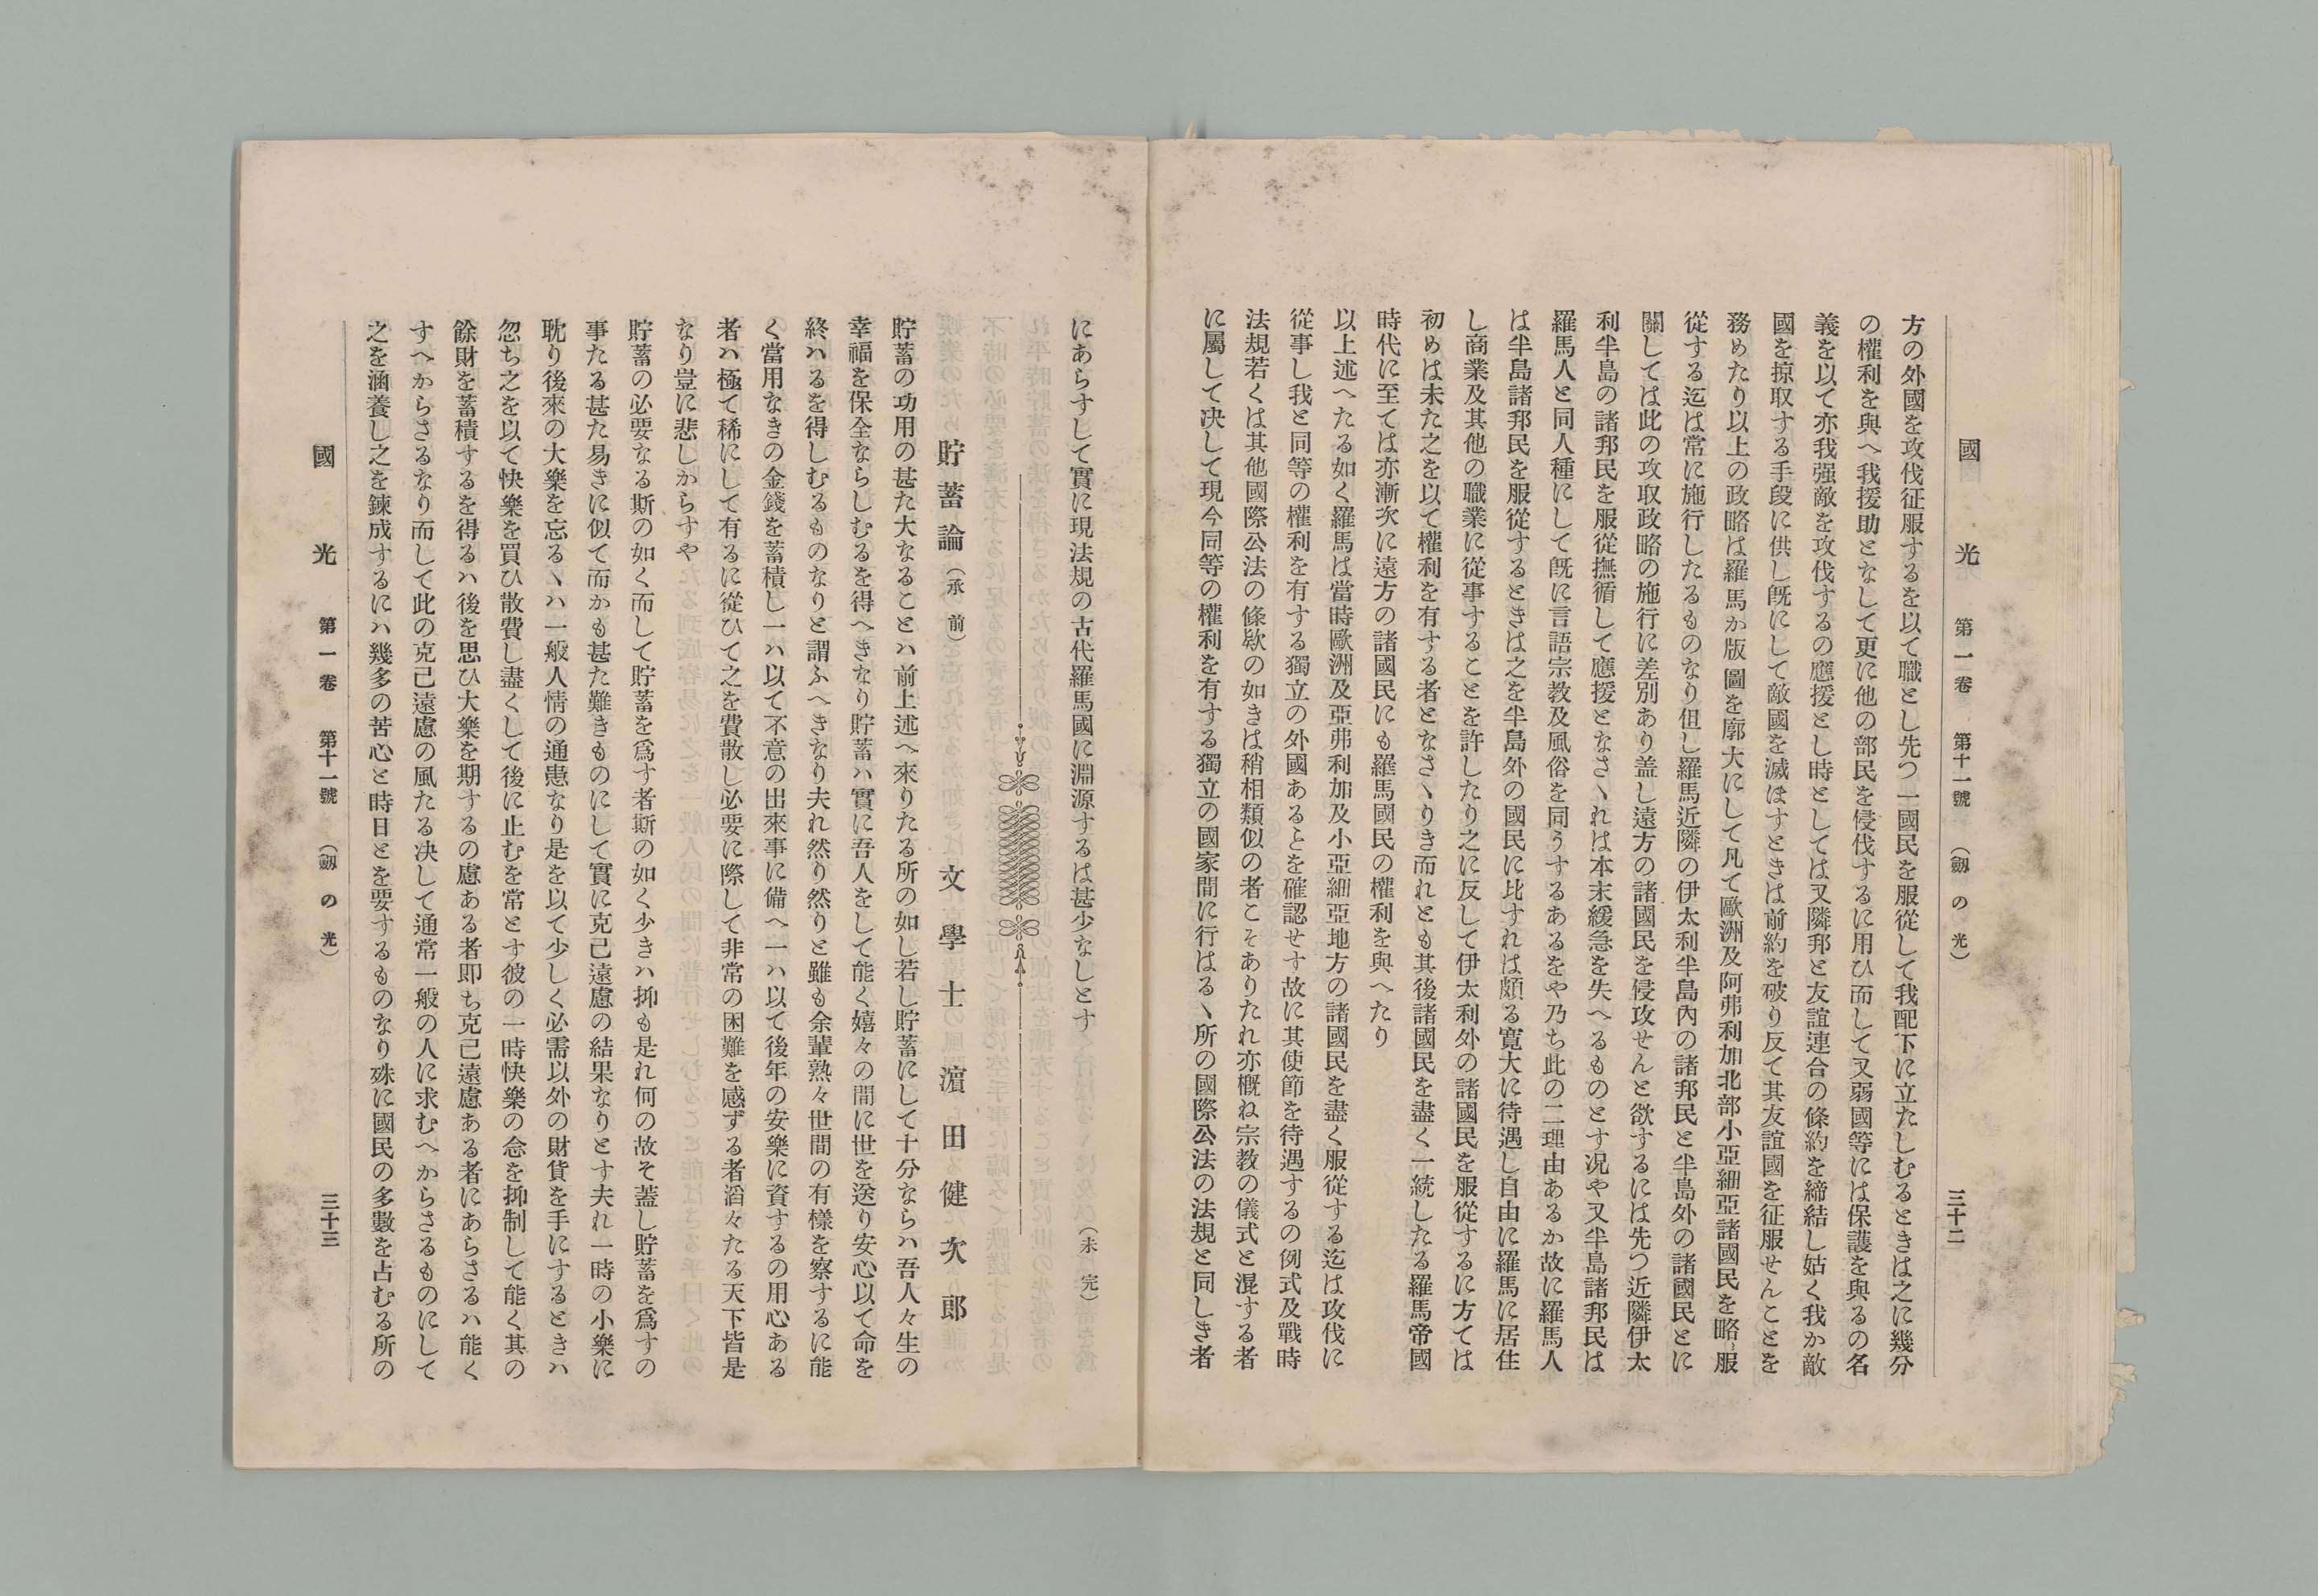 國光 第一卷 第十一號 (劔の光) 三十二
方の外國を攻伐征服するを以て職とし先つ一國民を服從して我配下に立たしむるときは之に幾分
の權利を與へ我援助となして更に他の部民を侵伐するに用ひ而して又弱國等には保護を與るの名
義を以て亦我强敵を攻伐するの應援とし時としては又隣邦と友誼連合の條約を締結し姑く我か敵
國を掠取する手段に供し旣にして敵國を滅ほすときは前約を破り反て其友誼國を征服せんことを
務めたり以上の政略は羅馬か版圖を廓大にして凡て歐洲及阿弗利加北部小亞細亞諸國民を略服
從する迄は常に施行したるものなり但し羅馬近隣の伊太利半島內の諸邦民と半島外の諸國民とに
關しては此の攻取政略の施行に差別あり盖し遠方の諸國民を侵攻せんと欲するには先つ近隣伊太
利半島の諸邦民を服從撫循して應援となさヽれは本末緩急を失へるものとす况や又半島諸邦民は
羅馬人と同人種にして旣に言語宗教及風俗を同うするあるをや乃ち此の二理由あるか故に羅馬人
は半島諸邦民を服從するときは之を半島外の國民に比すれは頗る寬大に待遇し自由に羅馬に居住
し商業及其他の職業に從事することを許したり之に反して伊太利外の諸國民を服從するに方ては
初めは未た之を以て權利を有する者となさヽりき而れとも其後諸國民を盡く一統したる羅馬帝國
時代に至ては亦漸次に遠方の諸國民にも羅馬國民の權利を與へたり
以上述へたる如く羅馬は當時歐洲及亞弗利加及小亞細亞地方の諸國民を盡く服從する迄は攻伐に
從事し我と同等の權利を有する獨立の外國あるとを確認せす故に其使節を待遇するの例式及戰時
法規若くは其他國際公法の條欵の如きは稍相類似の者こそありたれ亦槪ね宗教の儀式と混する者
に屬して决して現今同等の權利を有する獨立の國家間に行はるヽ所の國際公法の法規と同しき者
にあらすして實に現法規の古代羅馬國に淵源するは甚少なしとす (未完)
貯蓄論(承前)
文學士 濵田健次郎
貯蓄の功用の甚た大なることハ前上述へ來りたる所の如し若し貯蓄にして十分ならハ吾人々生の
幸福を保全ならしむるを得へきなり貯蓄ハ實に吾人をして能く嬉々の間に世を送り安心以て命を
終ハるを得しむるものなりと謂ふへきなり夫れ然り然りと雖も余輩熟々世間の有樣を察するに能
く當用なきの金錢を蓄積し一ハ以て不意の出來事に備へ一ハ以て後年の安樂に資するの用心ある
者ハ極て稀にして有るに從ひて之を費散し必要に際して非常の困難を感ずる者滔々たる天下皆是
なり豈に悲しからすや
貯蓄の必要なる斯の如く而して貯蓄を爲す者斯の如く少きハ抑も是れ何の故そ蓋し貯蓄を爲すの
事たる甚た易きに似て而かも甚た難きものにして實に克己遠慮の結果なりとす夫れ一時の小樂に
耽り後來の大樂を忘るヽハ一般人情の通患なり是を以て少しく必需以外の財貨を手にするときハ
忽ち之を以て快樂を買ひ散費し盡くして後に止むを常とす彼の一時快樂の念を抑制して能く其の
餘財を蓄積するを得るハ後を思ひ大樂を期するの慮ある者即ち克己遠慮ある者にあらさるハ能く
すへからさるなり而して此の克己遠慮の風たる决して通常一般の人に求むへからさるものにして
之を涵養し之を鍊成するにハ幾多の苦心と時日とを要するものなり殊に國民の多數を占むる所の
國光 第一卷 第十一號 (劔の光) 三十三